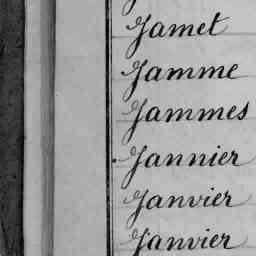 Jamet
Jamme
Jammes
Jannier
Janvier
Janvier